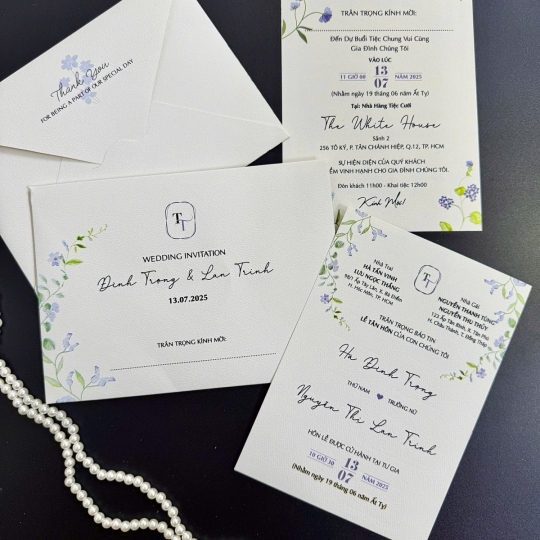 Thank You
FOR BEING A PART OF OUR SPECIAL DAY
TRÂN TRỌNG KÍNH MỜI:
Đến Dự Buổi Tiệc Chung Vui Cùng
Gia Đình Chúng Tôi
VÀO LÚC
11 GIỜ 00
13
07
NĂM 2025
(Nhằm ngày 19 tháng 06 năm Ất Tỵ)
Tại: Nhà Hàng Tiệc Cưới
The White House
Sảnh 2
256 TÔ KÝ, P. TÂN CHÁNH HIỆP, Q.12, TP. HCM
SỰ HIỆN DIỆN CỦA QUÝ KHÁCH
VINH HẠNH CHO GIA ĐÌNH CHÚNG TÔI
Đón khách 11h00 - Khai tiệc 12h00
Kính Mời
TT
WEDDING INVITATION
Đình Trọng & Lan Trinh
13.07.2025
TRÂN TRỌNG KÍNH MỜI:
TT
Nhà Trai
HÀ TẤN VINH
LƯU NGỌC THẮNG
H. Hóc Môn, TP. HCM
Nhà Gái
NGUYỄN THANH TÙNG
NGUYỄN THU THỦY
H. Châu Thành, T. Đồng Tháp
TRÂN TRỌNG BÁO TIN
LỄ TÂN HÔN CỦA CON CHÚNG TÔI
Hà Đình Trọng
THỨ NAM
TRƯỞNG NỮ
Nguyễn Thị Lan Trinh
HÔN LỄ ĐƯỢC CỬ HÀNH TẠI TƯ GIA
10 GIỜ 30
13
07
NĂM 2025
(Nhằm ngày 19 tháng 06 năm Ất Tỵ)